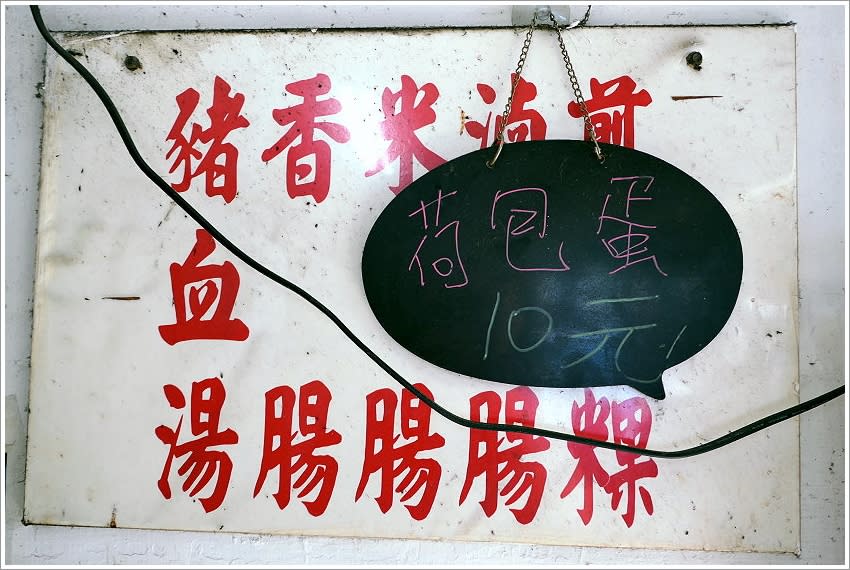 豬血湯
香腸
米腸
滷腸
煎粿
荷包蛋
10元